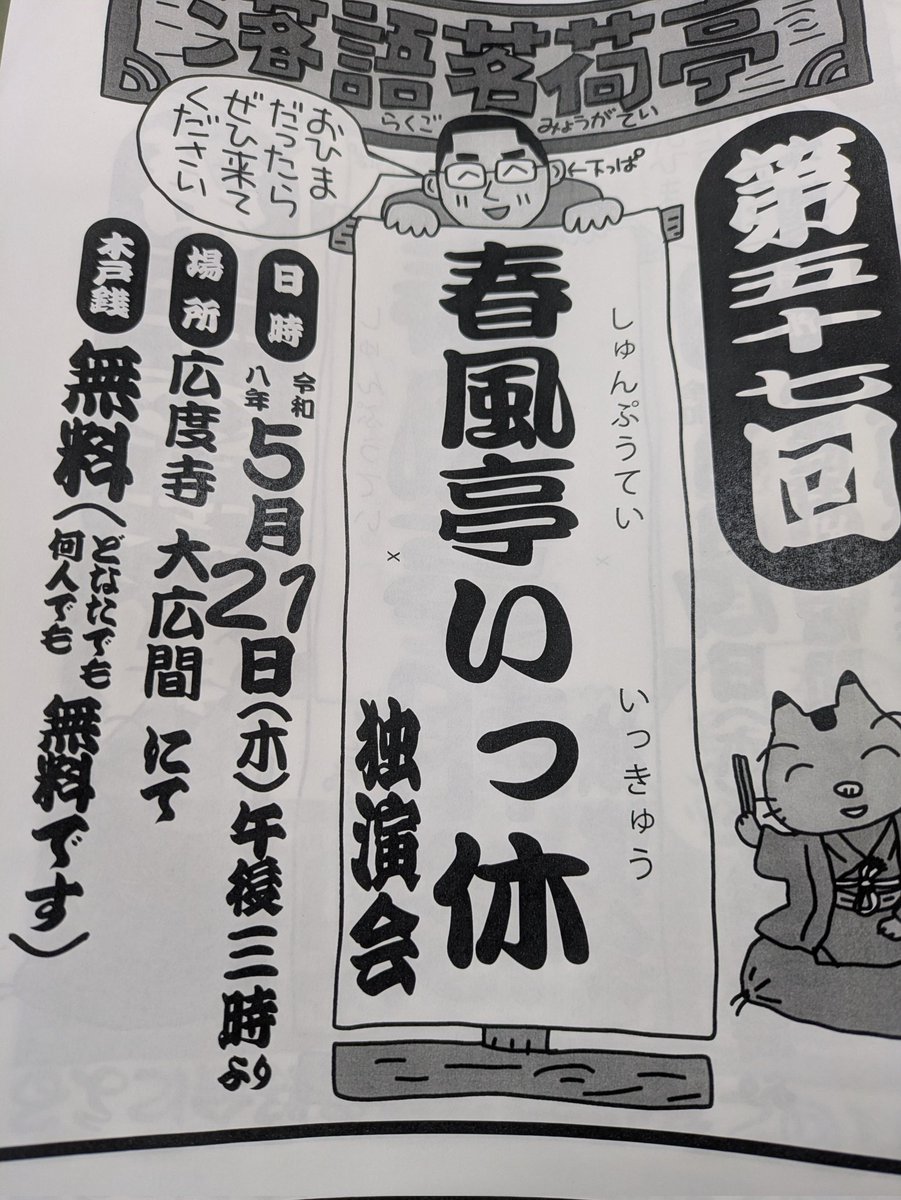 落語茗荷亭
らくご みょうがてい
おひま
だったら
ぜひ来て
ください
←下っぱ
第五十七回
しゅんぷうてい いっきゅう
春風亭いっ休
独演会
日時
令和
八年
5月21日(木)午後三時より
場所
広度寺 大広間 にて
木戸銭
無料(どなたでも
何人でも
無料です)